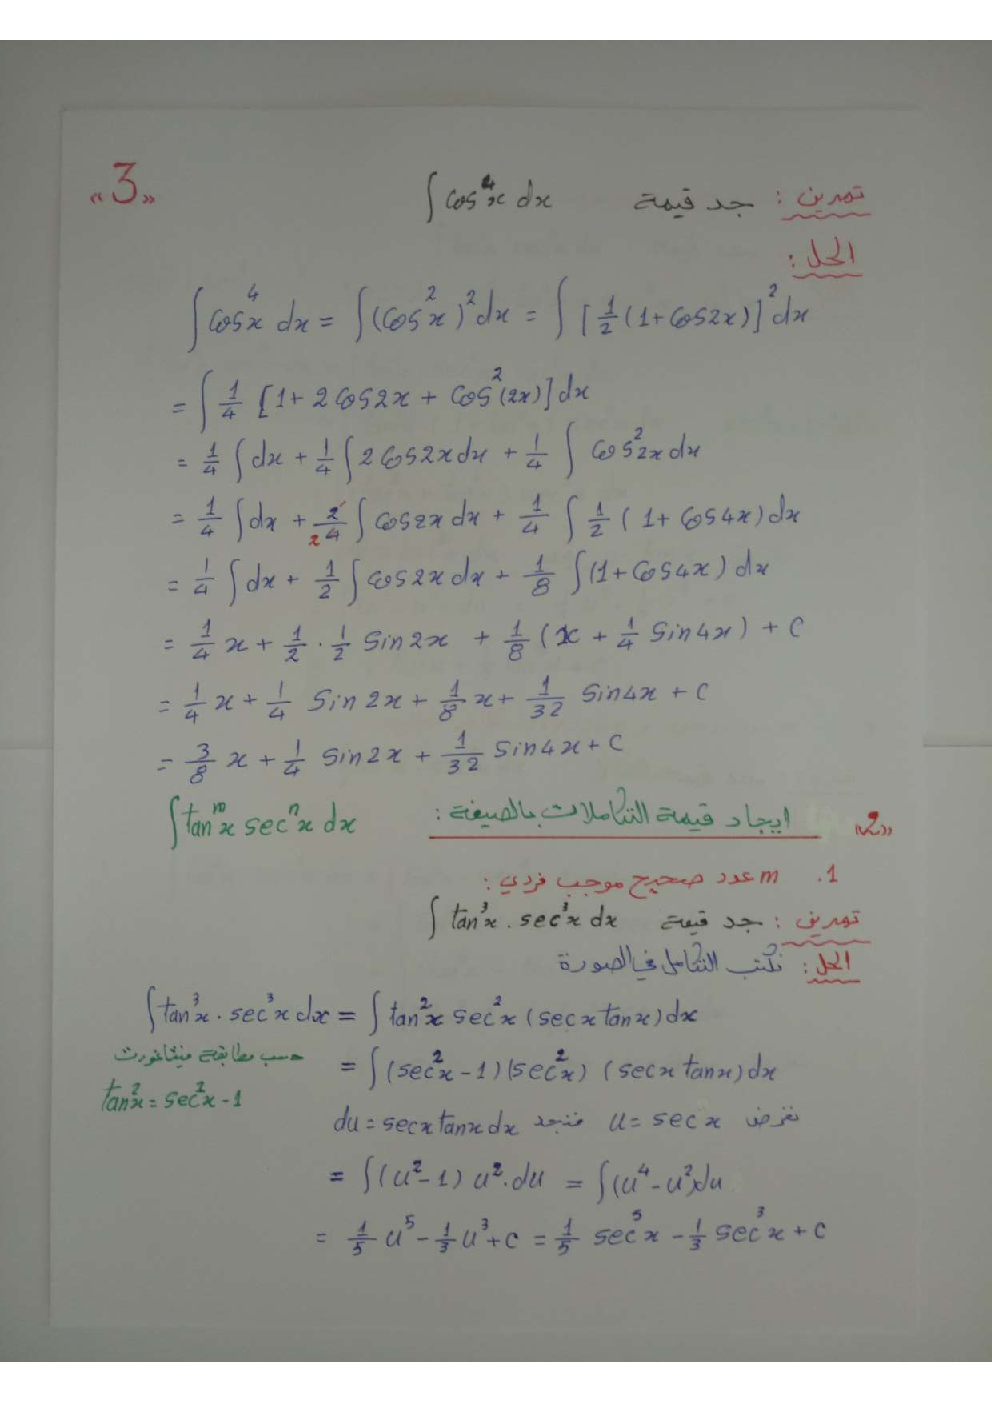 «3»
تمرين : جد قيمة ∫ cos⁴x dx
الحل :
∫ cos⁴x dx = ∫ (cos²x)² dx = ∫ [1/2 (1+cos2x)]² dx
= ∫ 1/4 [1 + 2cos2x + cos²(2x)] dx
= 1/4 ∫ dx + 1/4 ∫ 2cos2x dx + 1/4 ∫ cos²2x dx
= 1/4 ∫ dx + 2/4 2 ∫ cos2x dx + 1/4 ∫ 1/2 (1+cos4x) dx
= 1/4 ∫ dx + 1/2 ∫ cos2x dx + 1/8 ∫ (1+cos4x) dx
= 1/4 x + 1/2 · 1/2 sin2x + 1/8 (x + 1/4 sin4x) + c
= 1/4 x + 1/4 sin2x + 1/8 x + 1/32 sin4x + c
= 3/8 x + 1/4 sin2x + 1/32 sin4x + c
«2» ايجاد قيمة التكاملات بالصيغة : ∫ tanᵐx secⁿx dx
1. m عدد صحيح موجب فردي :
تمرين : جد قيمة ∫ tan³x . sec³x dx
الحل : نكتب التكامل في الصورة
∫ tan³x . sec³x dx = ∫ tan²x sec²x (secx tanx) dx
حسب مطابقة فيثاغورث
= ∫ (sec²x - 1)(sec²x) (secx tanx) dx
tan²x = sec²x - 1
نفرض u = secx فنجد du = secx tanx dx
= ∫ (u² - 1) u² . du = ∫ (u⁴ - u²) du
= 1/5 u⁵ - 1/3 u³ + c = 1/5 sec⁵x - 1/3 sec³x + c